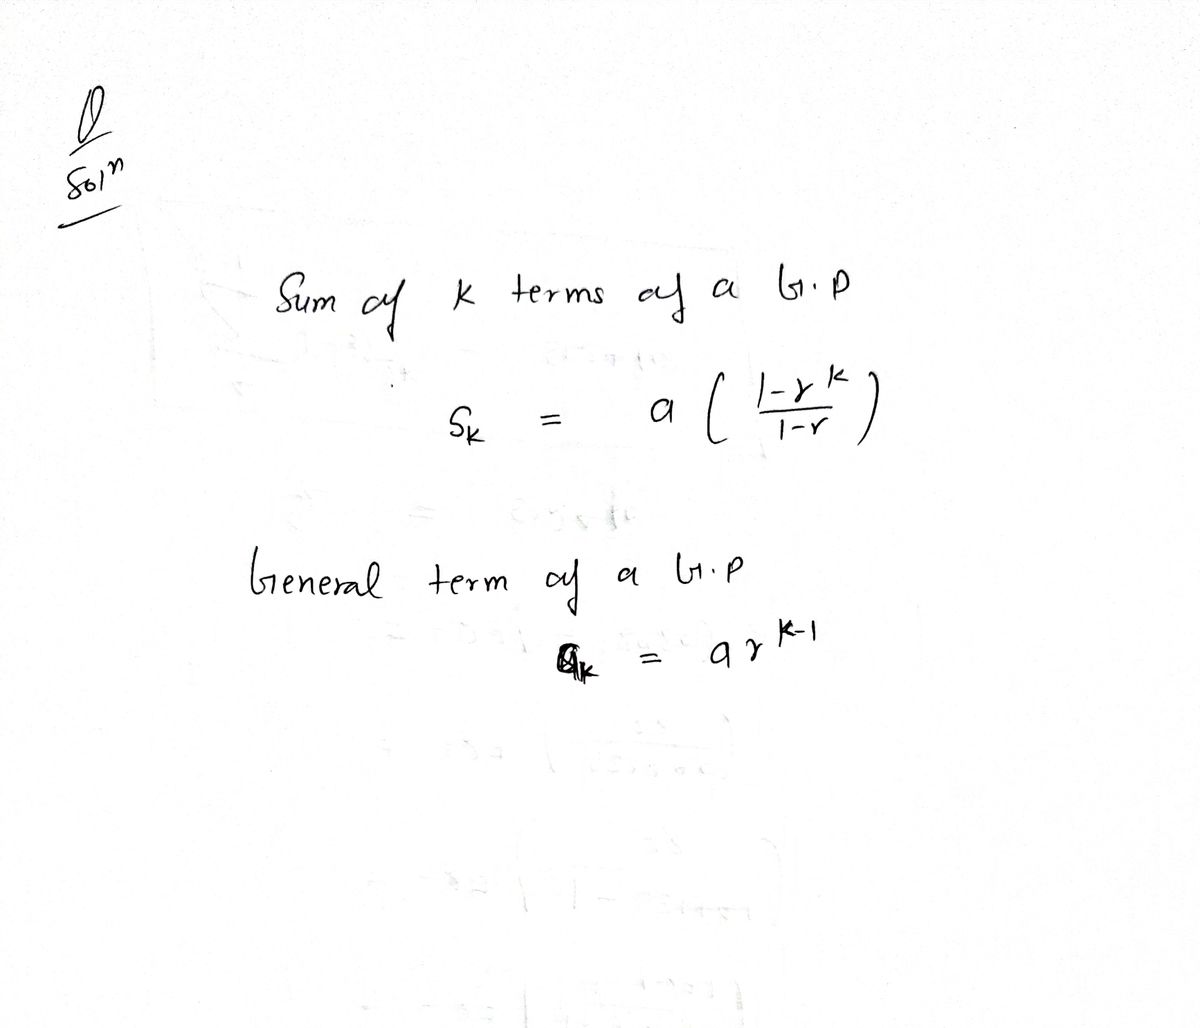 Q
Solⁿ
Sum of K terms of a G.P
S_K = a ( (1-r^k)/(1-r) )
General term of a G.P
a_K = a r^(K-1)